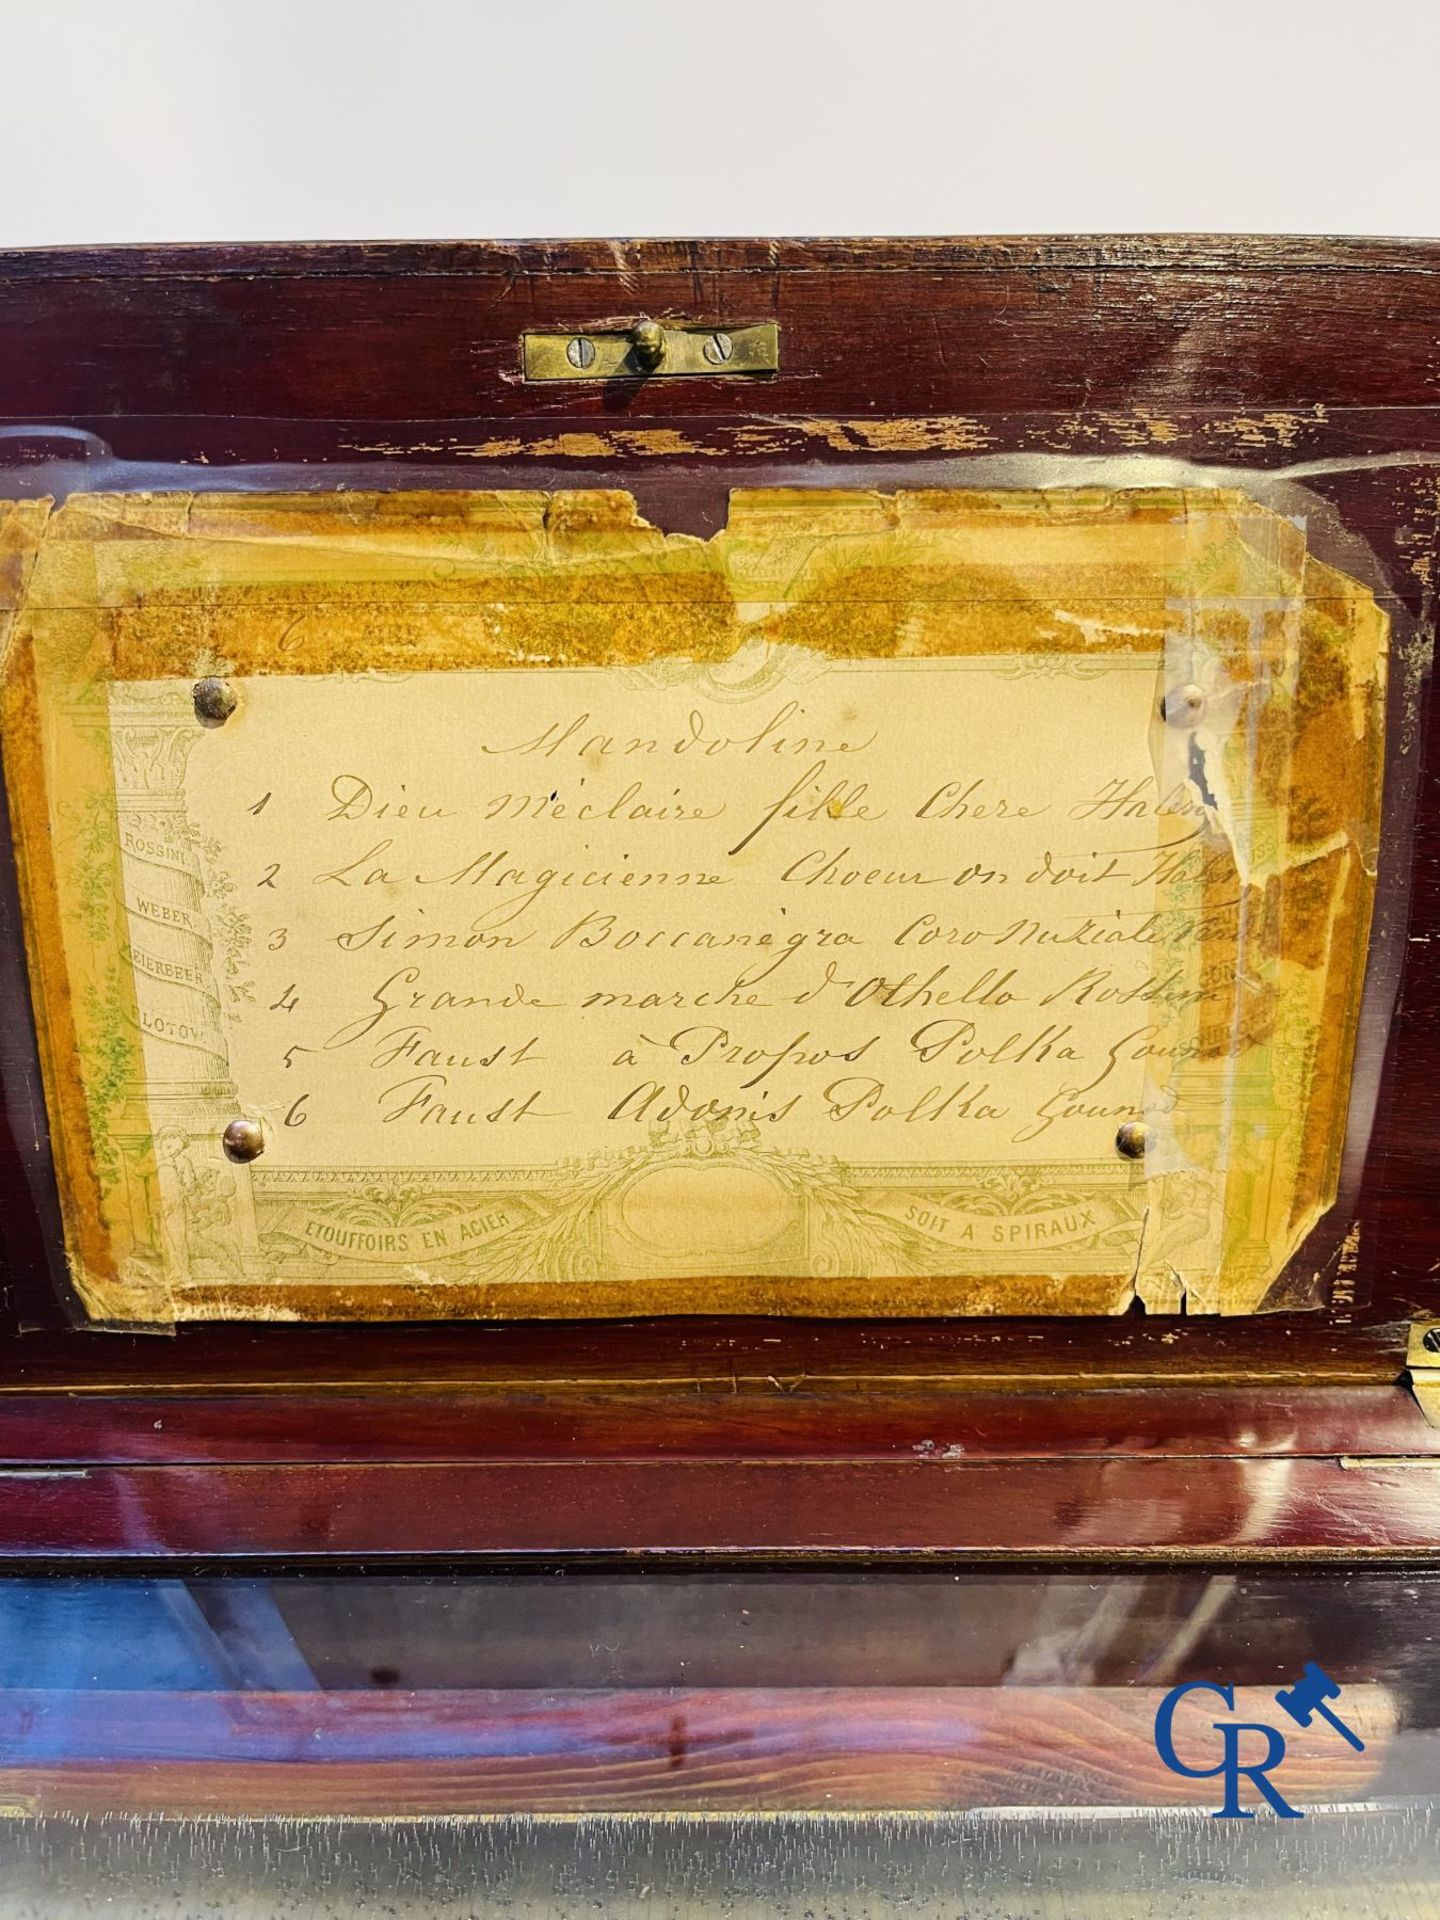 6 AIRS
Mandoline
1 Dieu m'éclaire fille Chere Halevy
2 La Magicienne Choeur on doit Halevy
3 Simon Boccanégra Coro Nuziale Verdi
4 Grande marche d'Othello Rossini
5 Faust à Propos Polka Gounod
6 Faust Adonis Polka Gounod
ROSSINI
WEBER
EIERBEER
FLOTOW
ETOUFFOIRS EN ACIER
SOIT A SPIRAUX
GR